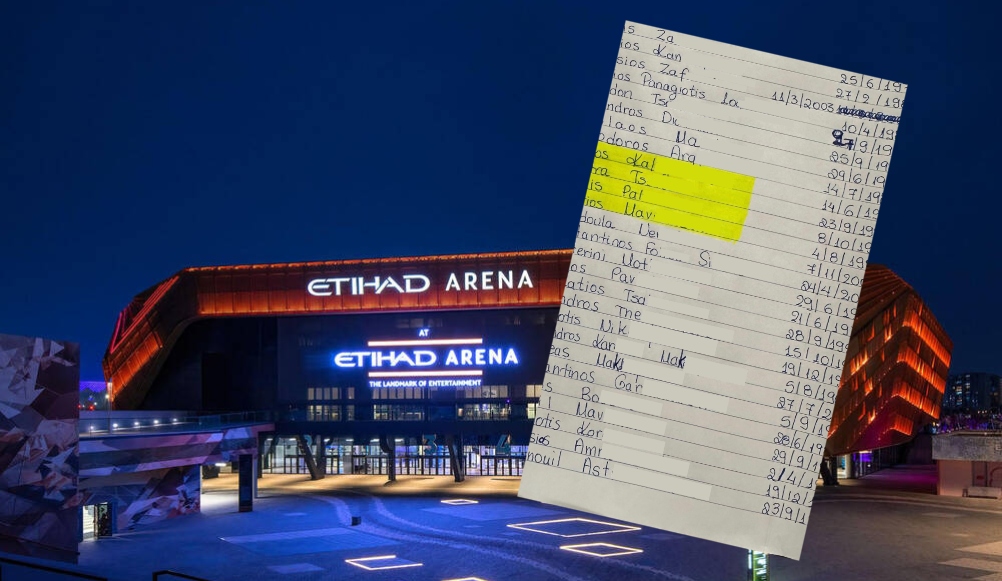 ETIHAD ARENA
AT
ETIHAD ARENA
THE LANDMARK OF ENTERTAINMENT
s Za
ios Kan 25/6/19
sios Zaf 27/2/19
os Panagiotis La 11/3/2003
don Tsi 10/4/19
ndros Du 9/19
laos Ma 25/9/19
odoros Arg 29/6/19
os Kal 14/7/19
ra Ts 14/6/19
is Pal 23/9/19
ios Mav 8/10/19
doula Vei 4/8/19
antinos Fo Si 7/11/20
erini Mot 24/4/20
os Pav 29/6/19
atios Tsa 21/6/19
ndros The 28/9/19
otis Nik 15/10/19
dros Kan Mak 19/12/19
eas Mak 5/8/19
antinos Gar 27/7/2
s Bo 5/9/19
l Mav 28/6/19
otis Kor 29/9/1
sios Ami 2/4/1
nouil Ast 19/12/
23/9/1